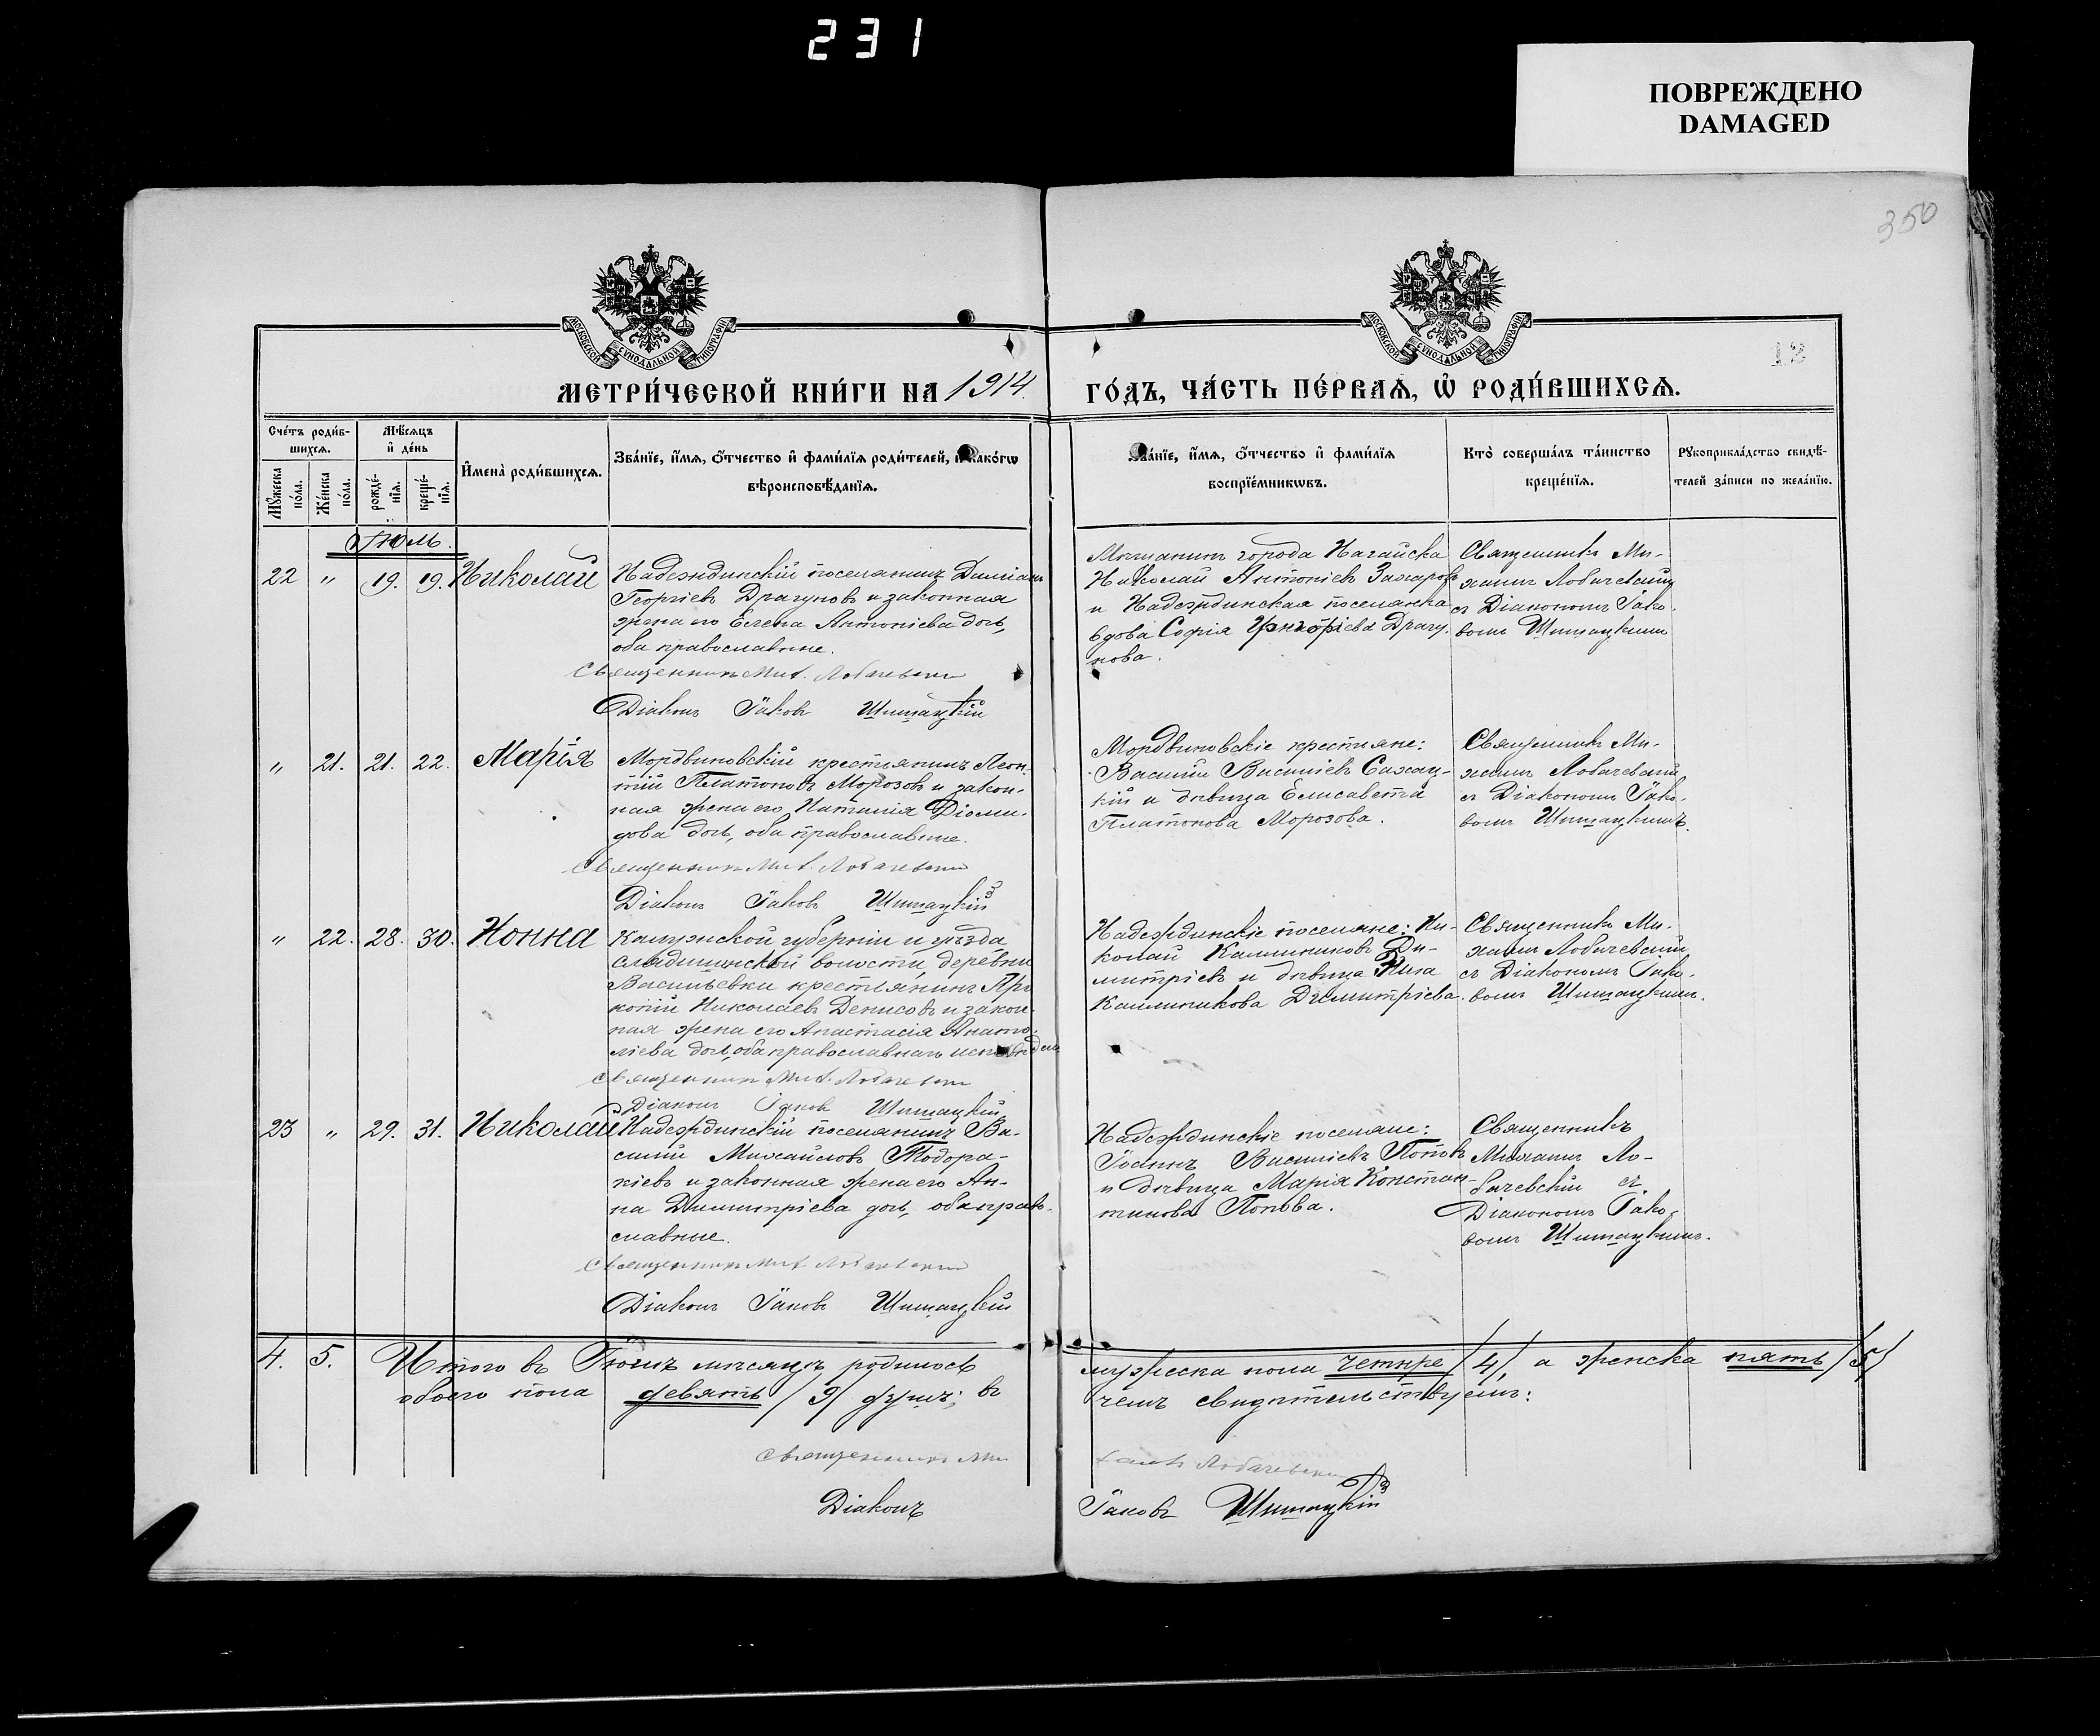 231
ПОВРЕЖДЕНО
DAMAGED
350
МОСКОВСКОЙ СѴНОДАЛЬНОЙ ТИПОГРАФІИ
МОСКОВСКОЙ СѴНОДАЛЬНОЙ ТИПОГРАФІИ
12
МЕТРИ́ЧЕСКОЙ КНИ́ГИ НА 1914 ГО́ДЪ, ЧА́СТЬ ПЕ́РВАѦ, Ѡ҆ РОДИ́ВШИХСѦ.
Сче́тъ роди́в-
шихсѧ.
Мꙋжеска по́ла.
Же́нска по́ла.
Мѣ́сѧцъ
и҆ де́нь
рожде́-
нїѧ.
креще́-
нїѧ.
И҆мена̀ роди́вшихсѧ.
Зва́нїе, и҆́мѧ, ѻ҆́тчество и҆ фами́лїѧ роди́телей, и҆ како́гѡ
вѣроисповѣ́данїѧ.
Зва́нїе, и҆́мѧ, ѻ҆́тчество и҆ фами́лїѧ
воспрїе́мникѡвъ.
Кто̀ соверша́лъ та́инство
креще́нїѧ.
Рꙋкоприкла́дство свидѣ́-
телей за́писи по жела́нїю.
Іюль.
22 " 19. 19. Николай
Надеждинскій поселянинъ Даміанъ
Георгіевъ Драгуновъ и законная
жена его Елена Антоніева дочь,
оба православные.
Священникъ Мих. Лобачевскій
Діаконъ Іаковъ Шишацкій
Мѣщанинъ города Ногайска
Николай Антоніевъ Захаровъ
и Надеждинская поселянка
вдова Софія Григоріева Драгу-
нова.
Священникъ Ми-
хаилъ Лобачевскій
съ Діакономъ Іако-
вомъ Шишацкимъ
" 21. 21. 22. Марія
Мордвиновскій крестьянинъ Леон-
тій Платоновъ Морозовъ и закон-
ная жена его Наталія Діоми-
дова дочь, оба православные.
Священникъ Мих. Лобачевскій
Діаконъ Іаковъ Шишацкій
Мордвиновскіе крестьяне:
Василій Василіевъ Сахац-
кій и дѣвица Елисавета
Платонова Морозова.
Священникъ Ми-
хаилъ Лобачевскій
съ Діакономъ Іако-
вомъ Шишацкимъ.
" 22. 28. 30. Нонна
Калужской губерніи и уѣзда
волости, деревни
Васильевки крестьянинъ Про-
копій Николаевъ Денисовъ и закон-
ная жена его Анастасія Анато-
ліева дочь, оба православнаго исповѣдан
Священникъ Мих. Лобачевскій
Діаконъ Іаковъ Шишацкій
Надеждинскіе поселяне: Ни-
колай Калинниковъ Ди-
митріевъ и дѣвица Нина
Калинникова Димитріева.
Священникъ Ми-
хаилъ Лобачевскій
съ Діакономъ Іако-
вомъ Шишацкимъ.
23 " 29. 31. Николай
Надеждинскій поселянинъ Ва-
силій Михайловъ Тодора-
кіевъ и законная жена его Ан-
на Димитріева дочь, оба право-
славные.
Священникъ Мих. Лобачевскій
Діаконъ Іаковъ Шишацкій
Надеждинскіе поселяне:
Іоаннъ Василіевъ Поповъ
и дѣвица Марія Констан-
тинова Попова.
Священникъ
Михаилъ Ло-
бачевскій съ
Діакономъ Іако-
вомъ Шишацкимъ.
4. 5. Итого въ Іюлѣ мѣсяцѣ родилось мужеска пола четыре /4/, а женска пять /5/
обоего пола девять /9/ душъ; въ чемъ свидѣтельствуемъ:
Священникъ Михаилъ Лобачевскій
Діаконъ Іаковъ Шишацкій